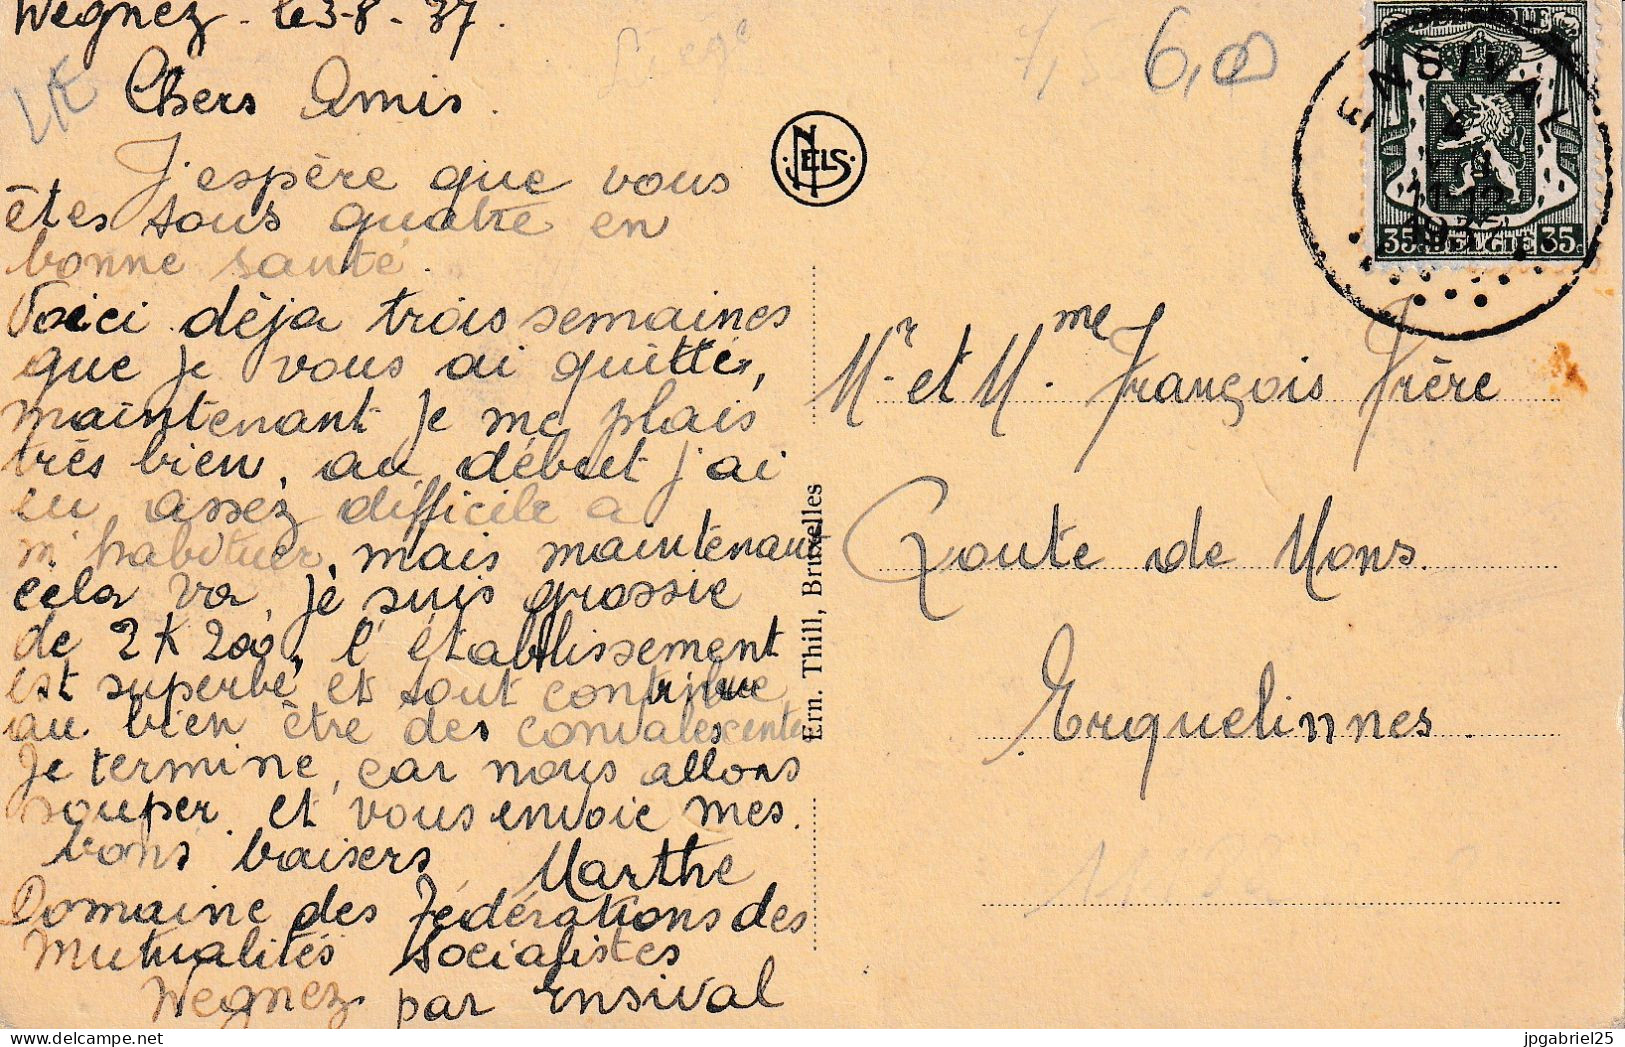 Wegnez - le 3-8-37.
Chers Amis.
J'espère que vous
êtes tous quatre en
bonne santé.
Voici déja trois semaines
que je vous ai quittés,
maintenant je me plais
très bien, au début j'ai
eu assez difficile a
m'habituer, mais maintenant
cela va, je suis grossie
de 2 K 200, l'établissement
est superbe et tout contribue
au bien être des convalescentes
Je termine, car nous allons
souper et vous envoie mes
bons baisers Marthe
Domaine des Fédérations des
Mutualités socialistes
Wegnez par Ensival
NELS
Ern. Thill, Bruxelles
6,00
Liège
ENSIVAL
35c BELGIË 35c
Mr et Mme François Frère
Route de Mons.
Erquelinnes.
delcampe.net
jpgabriel25